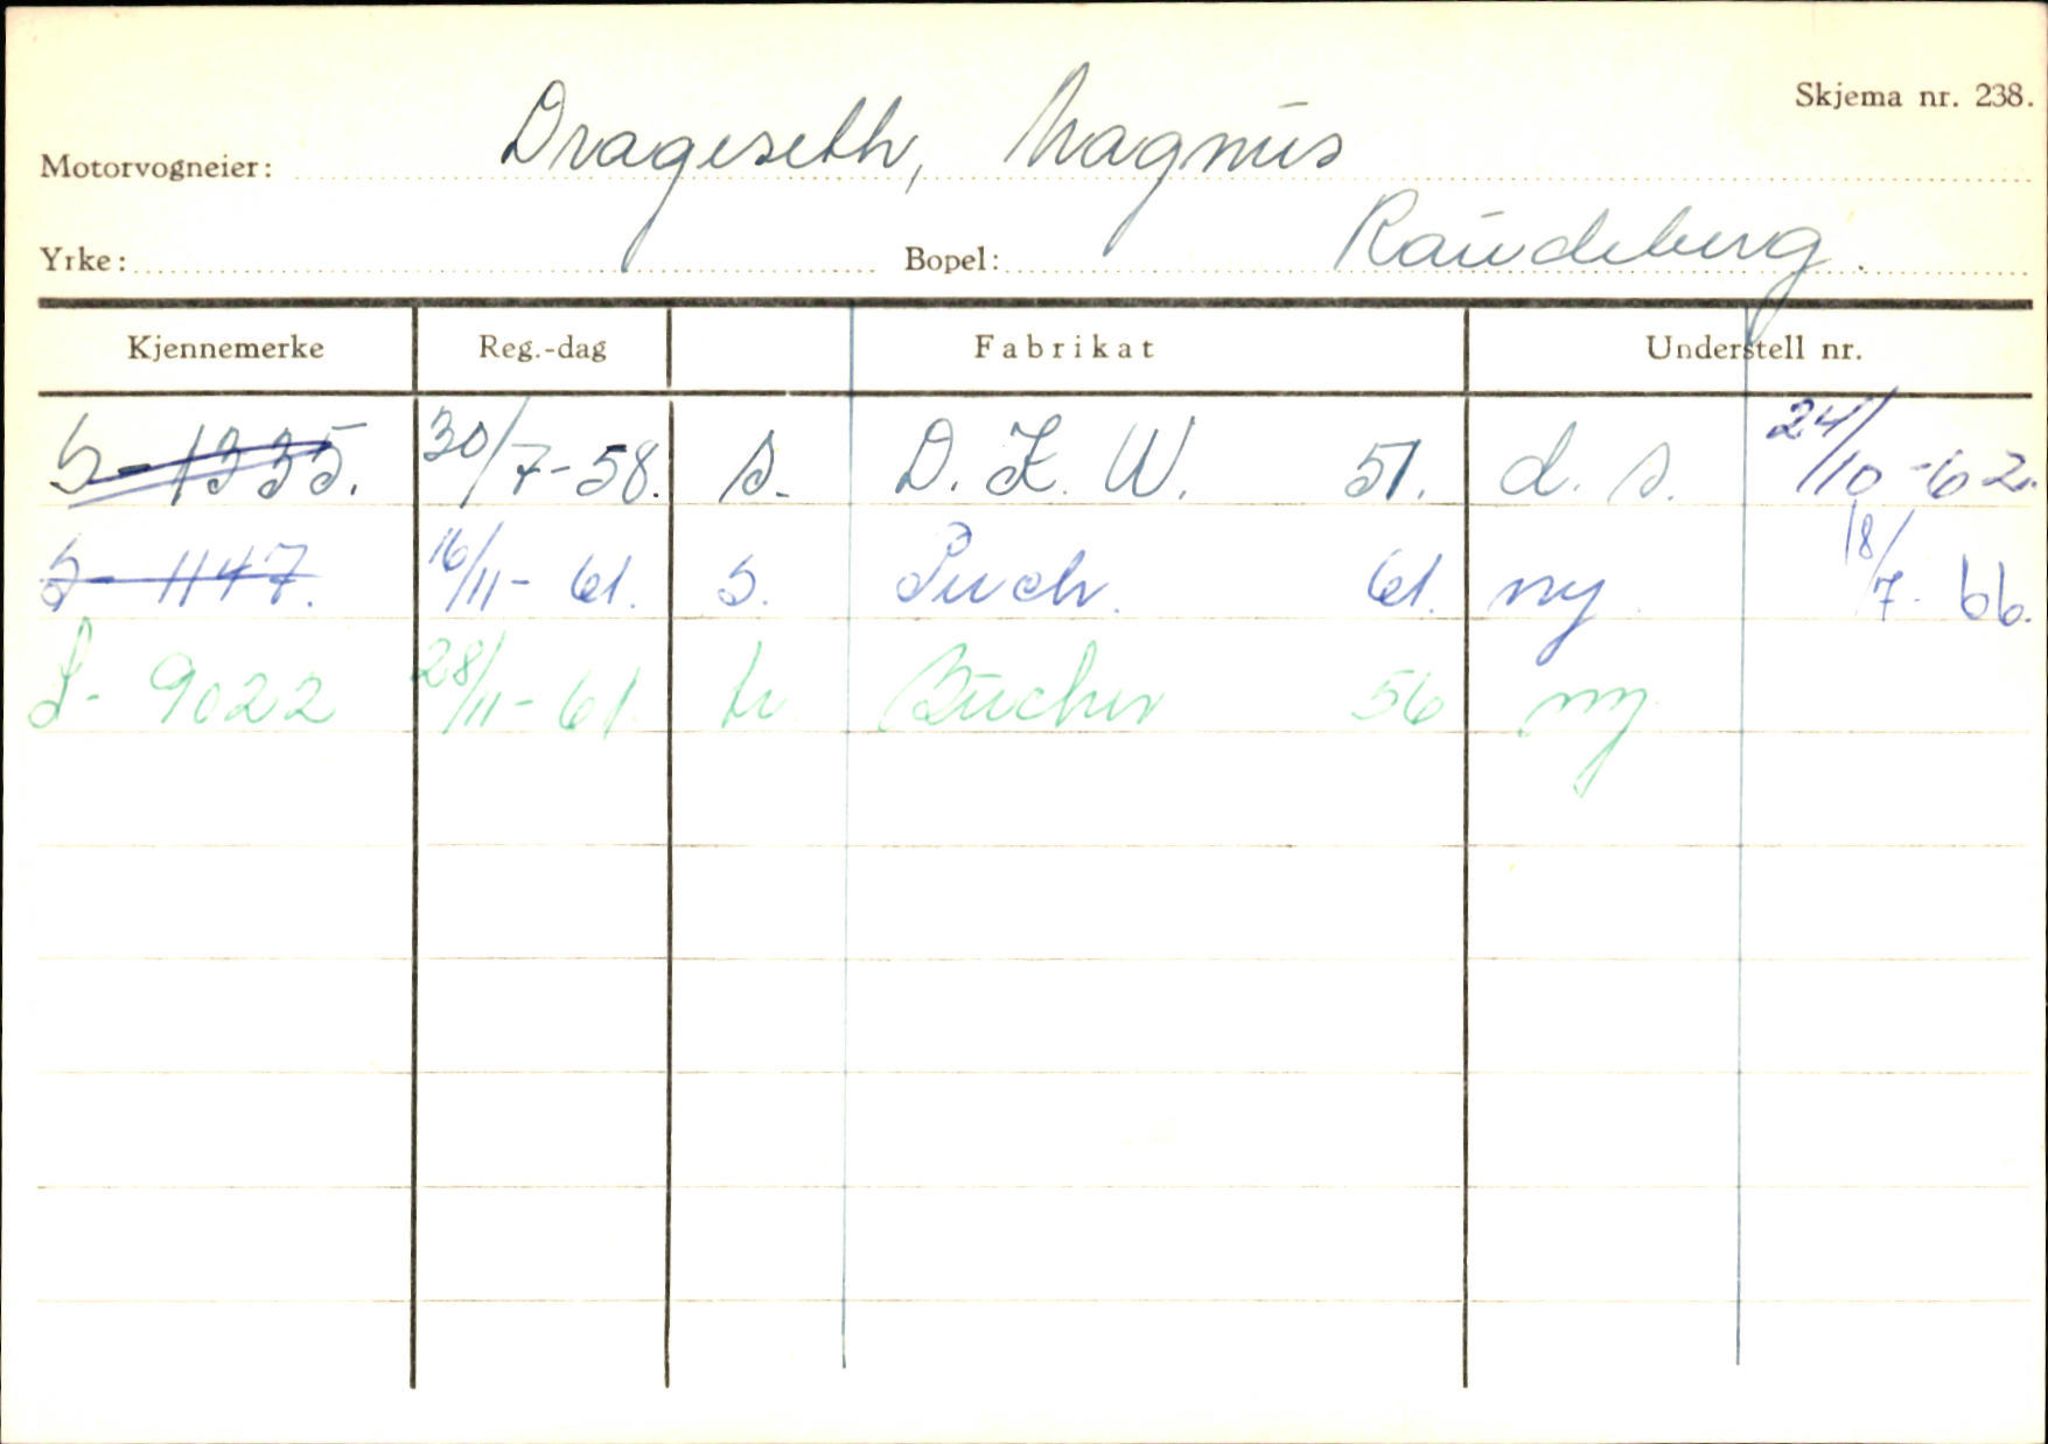 Skjema nr. 238.
Motorvogneier: Drageseth, Magnus
Yrke: Bopel: Raudeberg.
Kjennemerke Reg.-dag Fabrikat Understell nr.
S-1335. 30/7-58. s. D.K.W. 51. d.s. 24/10-62.
S-1147. 16/11-61. s. Puch. 61. ny. 18/7-66.
S-9022 28/11-61. tr. Bucher 56 ny.